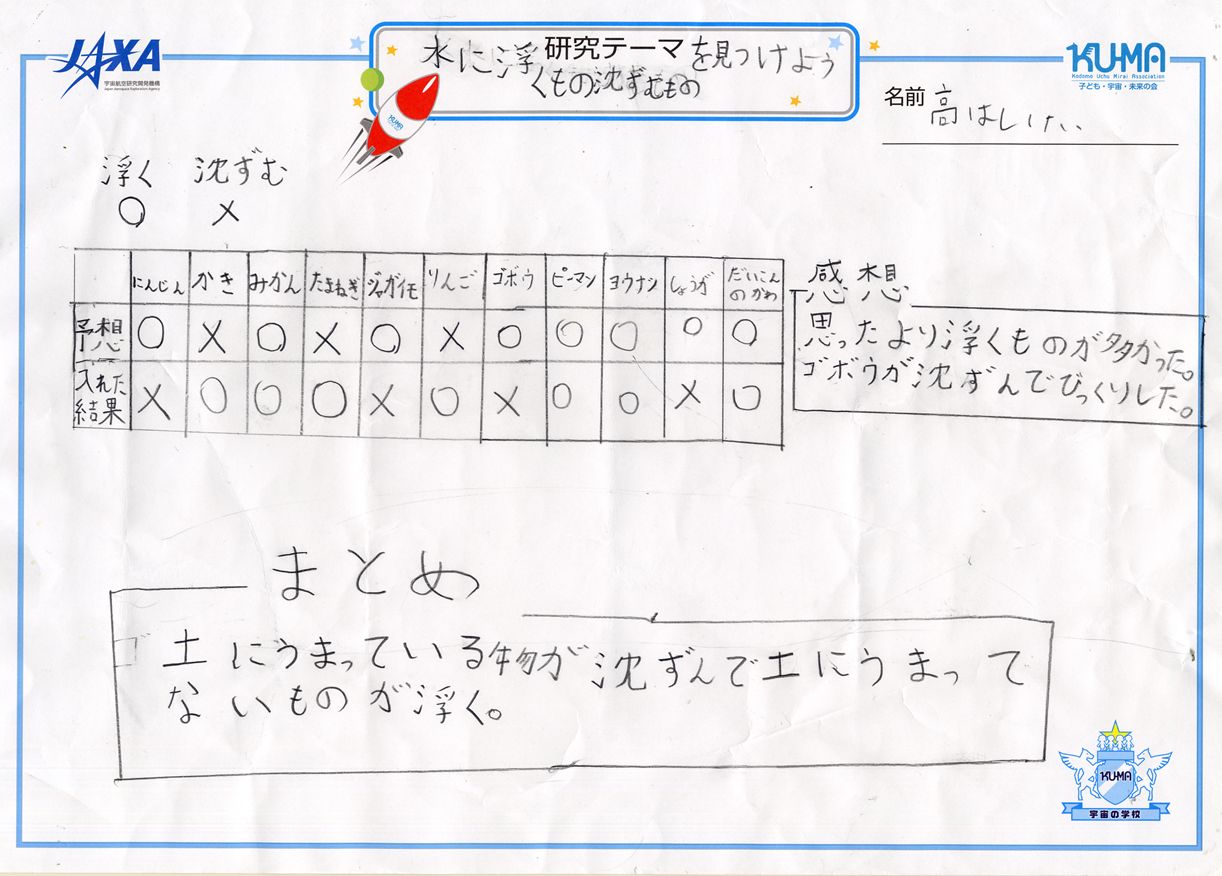 JAXA
宇宙航空研究開発機構
Japan Aerospace Exploration Agency
研究テーマ
水に浮くもの沈ずむものを見つけよう
KU-MA
Kodomo Uchu Mirai Association
子ども・宇宙・未来の会
名前 高はしけい
KU-MA
浮く 沈ずむ
○ ×
にんじん かき みかん たまねぎ ジャガイモ りんご ゴボウ ピーマン ヨウナシ しょうが だいこんのかわ
予想 ○ × ○ × ○ × ○ ○ ○ ○ ○
入れた結果 × ○ ○ ○ × ○ × ○ ○ × ○
感想
思ったより浮くものが多かった。
ゴボウが沈ずんでびっくりした。
まとめ
土にうまっている物が沈ずんで土にうまって
ないものが浮く。
KU-MA
宇宙の学校